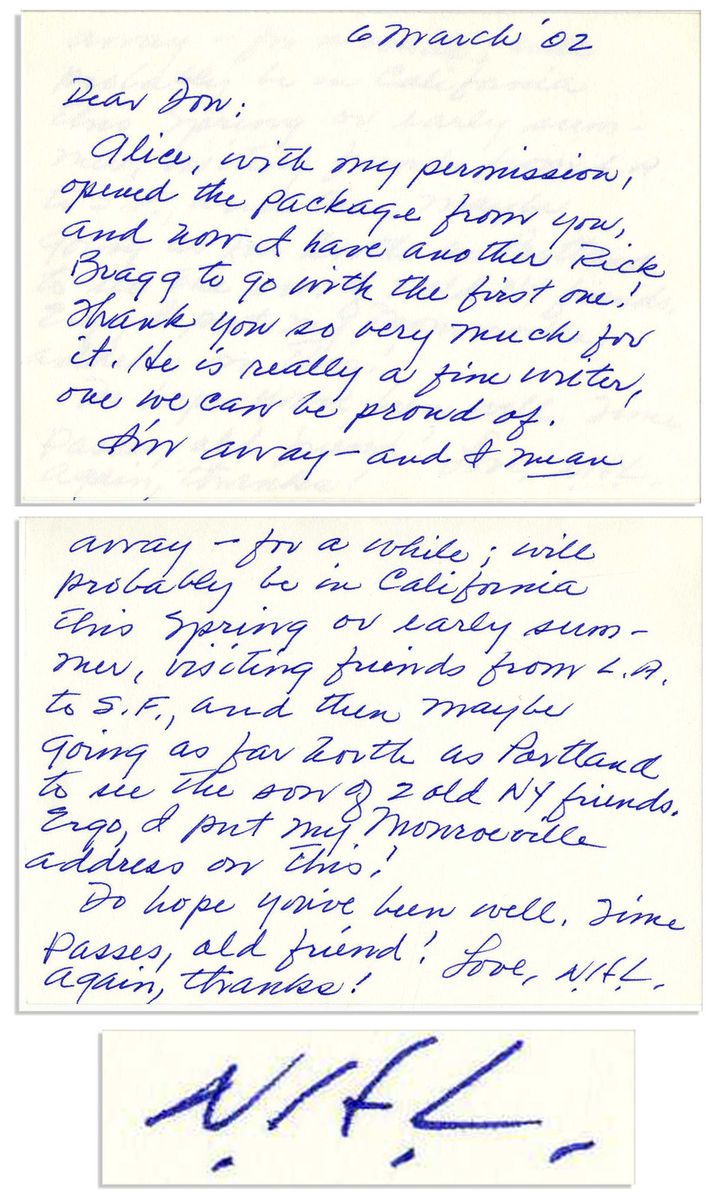 6 March '02
Dear Don:
Alice, with my permission,
opened the package from you,
and now I have another Rick
Bragg to go with the first one!
Thank you so very much for
it. He is really a fine writer,
one we can be proud of.
I'm away — and I mean
away — for a while; will
probably be in California
this Spring or early sum-
mer, visiting friends from L.A.
to S.F., and then maybe
going as far north as Portland
to see the son of 2 old NY friends.
Ergo, I put my Monroeville
address on this!
Do hope you've been well. Time
passes, old friend! Love, N.H.L.
Again, thanks!
N.H.L.